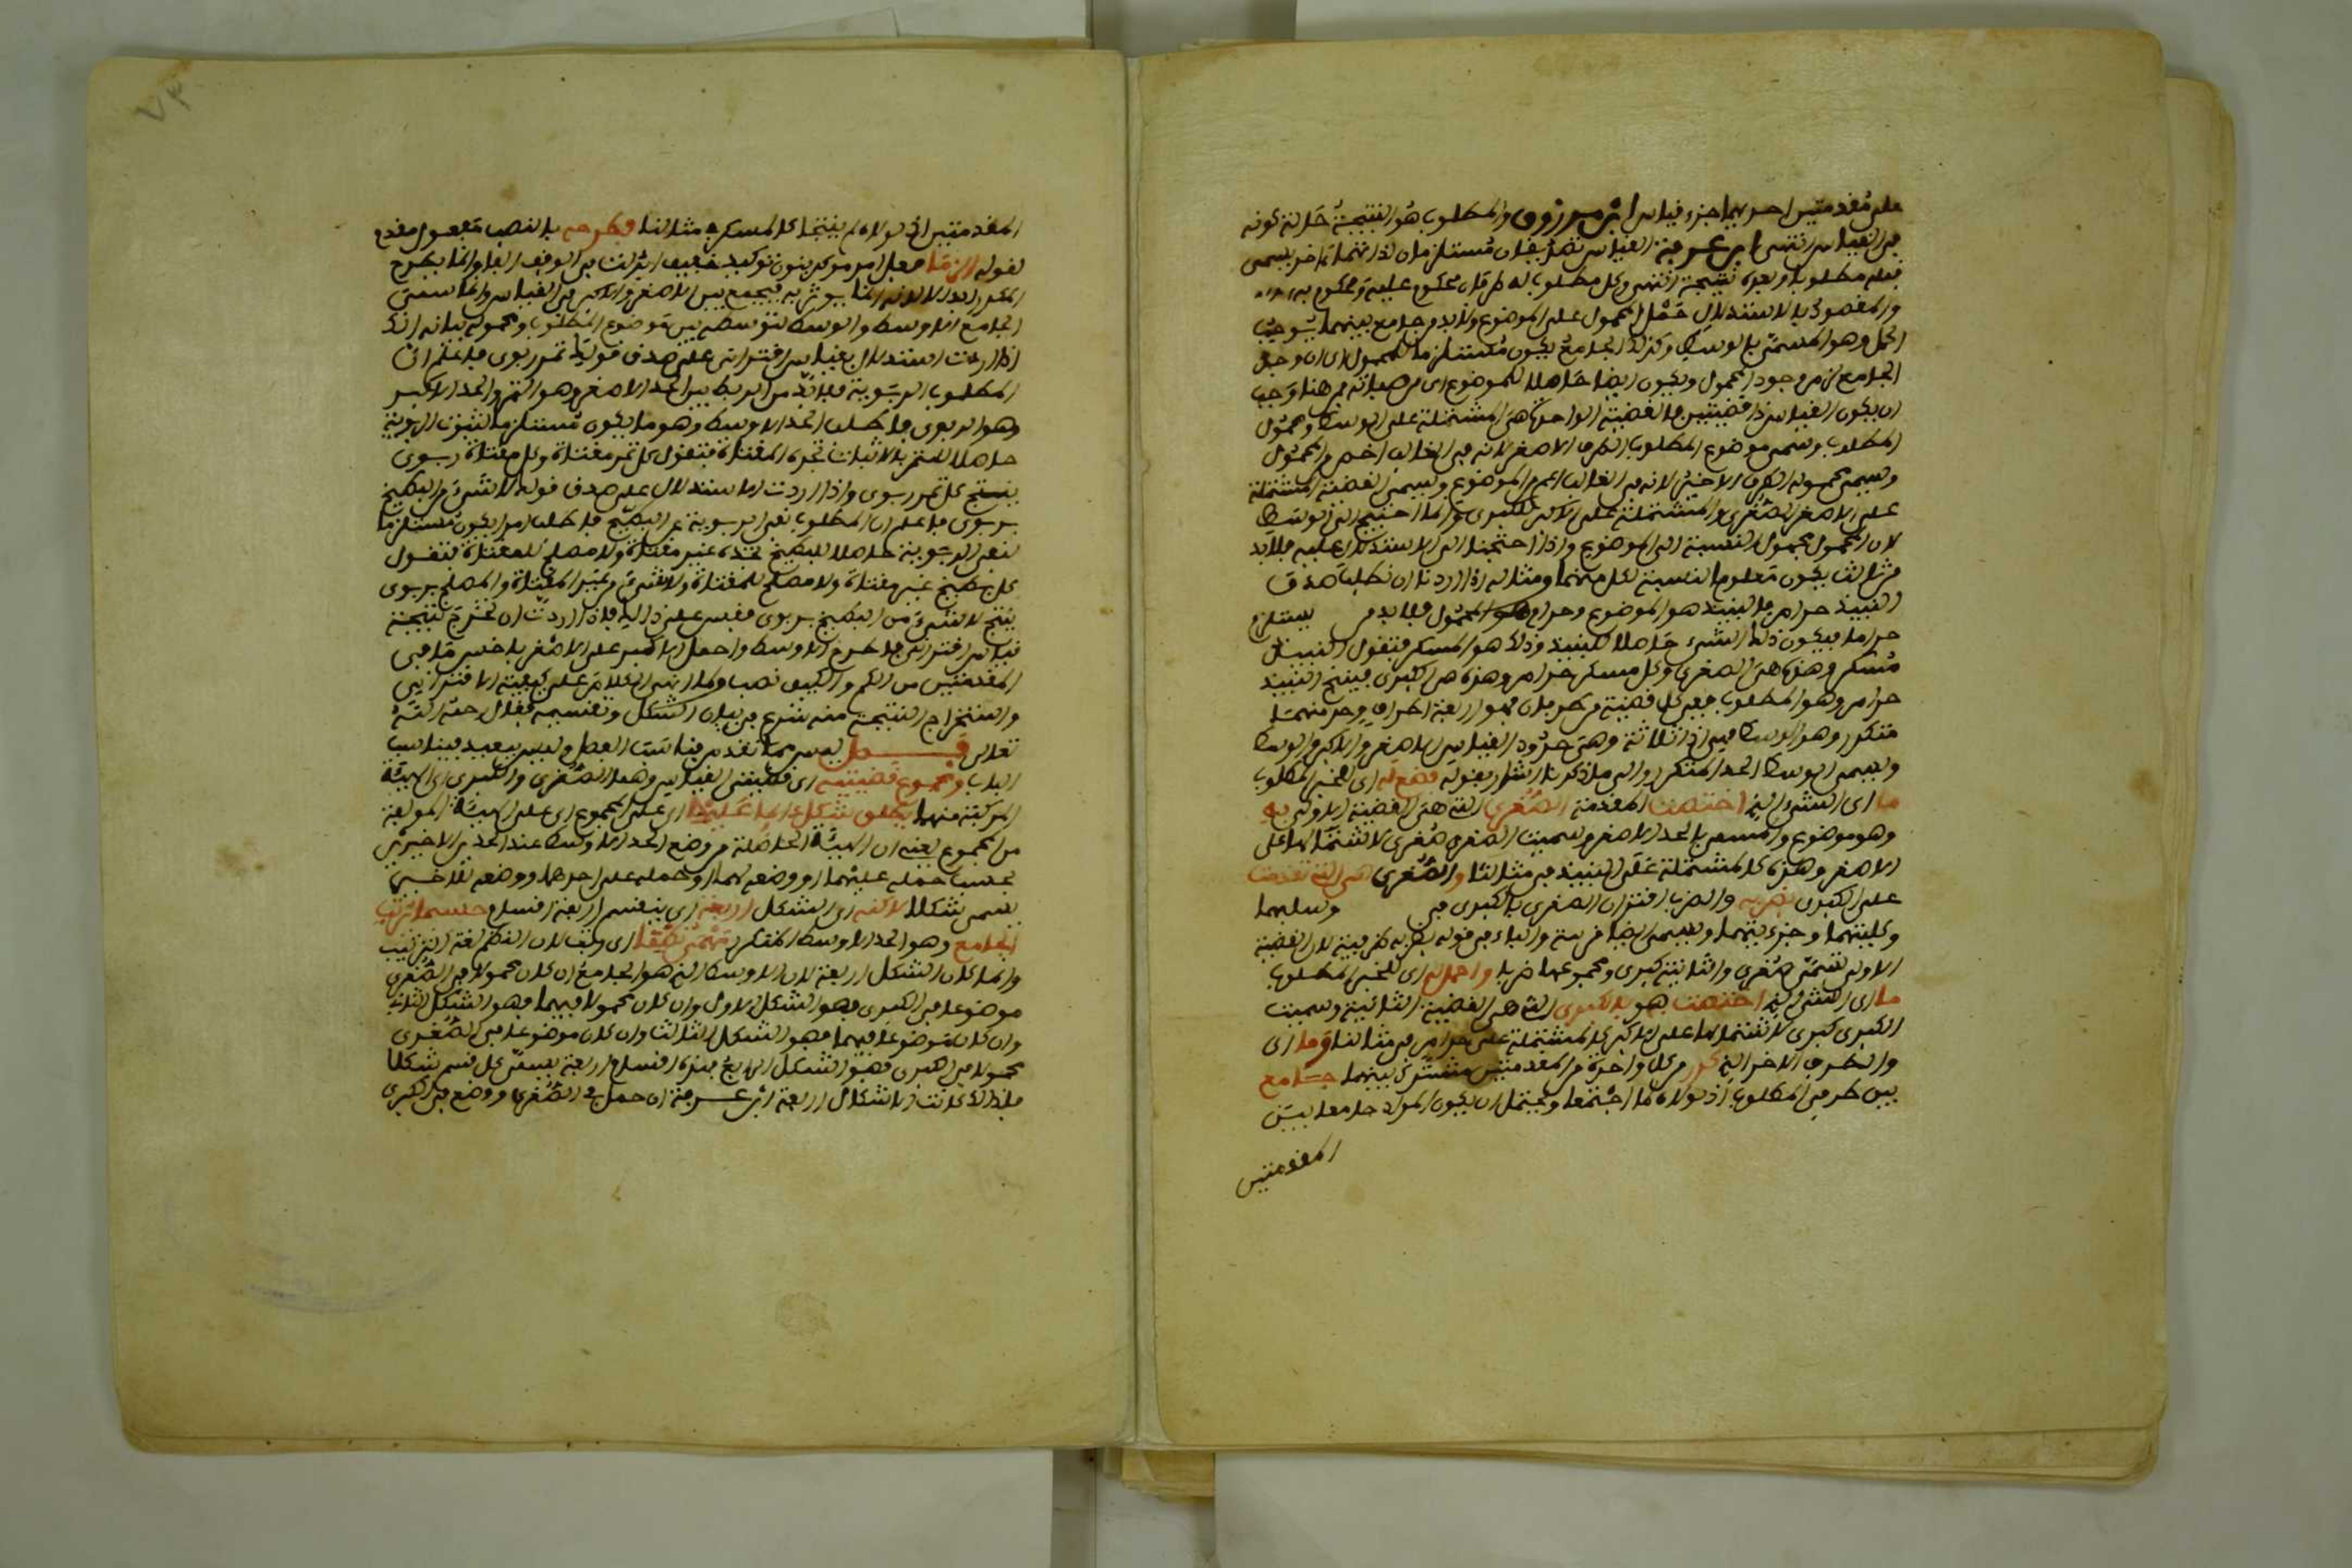 على مقدمتين احديهما جزء قياس ابن مرزوق والمطلوب هو النتيجة حالة كونه
في القياس انتهى ابن عرفة القياس تصديقان مستلزمان لذاتهما ءاخر يسمى
قبله مطلوبا وبعده نتيجة انتهى وكل مطلوب له طرفان محكوم عليه ومحكوم به
والمقصود بالاستدلال حمل المحمول على الموضوع ولا بد من جامع بينهما يوجب
الحمل وهو المسمى بالوسط وكذلك الجامع يكون مستلزما للمحمول اي ان وجد
الجامع لزم وجود المحمول ويكون ايضا حاصلا للموضوع اي من صفاته فمن هنا وجب
ان يكون القياس ذا قضيتين فالقضية الواحدة هي المشتملة على الوسط ومحمول
المطلوب وسمي موضوع المطلوب بالطرف الاصغر لانه في الغالب اخص من المحمول
وسمي محموله بالطرف الاكبر لانه في الغالب اعم من الموضوع وتسمى القضية المشتملة
على الاصغر الصغرى والمشتملة على الاكبر الكبرى وانما احتيج الى الوسط
لان المحمول مجهول النسبة الى الموضوع واذا احتجنا الى الاستدلال عليه فلا بد
من ثالث يكون معلوم النسبة لكل منهما ومثاله اذا اردنا ان نطلب صدق
النبيذ حرام فالنبيذ هو الموضوع وحرام هو المحمول فلا بد من يستلزم
حراما فيكون ذلك الشيء حاصلا للنبيذ وذلك هو المسكر فتقول النبيذ
مسكر وهذه هي الصغرى وكل مسكر حرام وهذه هي الكبرى فينتج النبيذ
حرام وهو المطلوب ففي كل قضية طرفان فهو اربعة اطراف واحد منهما
متكرر وهو الوسط فهي اذا ثلاثة وهي حدود القياس الاصغر والاكبر والوسط
ويسمى الوسط الحد المتكرر والى ما ذكرنا اشار بقوله فضع له اي لمخبر المطلوب
ما اي الشيء الذي اختصت المقدمة الصغرى التي هي القضية الاولى به
وهو موضوع والمسمى بالحد الاصغر وسميت الصغرى صغرى لاشتمالها على
الاصغر وهذه كالمشتملة على النبيذ في مثالنا والصغرى هي التي تقدمت
على الكبرى بضربه والضرب اقتران الصغرى بالكبرى في وسلبهما
وكليتهما وجزءيتهما ويسمى ايضا قرينة والباء في قوله بضربه ظرفية لان القضية
الاولى تسمى صغرى والثانية كبرى ومجموعهما ضربا واحمل اي للخبر المطلوب
ما اي الشيء الذي اختصت هو بالكبرى التي هي القضية الثانية وسميت
الكبرى كبرى لاشتمالها على الاكبر كالمشتملة على حرام في مثالنا وما اي
والطرف الاخر الذي كرر من كل واحدة من المقدمتين مشترك بينهما جامع
بين طرفي المطلوب اذ لولاه لما اجتمعا ويحتمل ان يكون المراد جامعا بين
المقدمتين
المقدمتين اذ لولاه لم ينتجا كالمسكر في مثالنا فطرحه بالنصب مفعول مقدم
لقوله الزما فعل امر موكد بنون توكيد خفيف ابدلت في الوقف الفا وانما يطرح
المكرر لانه انما يوتى به ليجمع بين الاصغر والاكبر في القياس وانما سمي
الجامع الاوسط والوسط لتوسطه بين موضوع المطلوب ومحموله بيانه انك
اذا اردت استدلال بقياس اقتراني على صدق قولنا كل تمر ربوي فاعلم ان
المطلوب الربوية فلا بد من الربط بين الحد الاصغر وهو التمر والحد الاكبر
وهو الربوي فاطلب الحد الاوسط وهو ما يكون مستلزما لثبوت الربوية
حاصلا للتمر بالاثبات تجده المقتات فتقول كل تمر مقتات وكل مقتات ربوي
ينتج كل تمر ربوي واذا اردت الاستدلال على صدق قوله لا شيء من البطيخ
بربوي فاعلم ان المطلوب نفي الربوية عن البطيخ فاطلب امرا يكون مستلزما
لنفي الربوية حاصلا للبطيخ تجده غير مقتات ولا مصلح للمقتات فتقول
كل بطيخ غير مقتات ولا مصلح للمقتات ولا شيء من غير المقتات والمصلح بربوي
ينتج لا شيء من البطيخ بربوي فقس على ذلك فاذا اردت ان تخرج نتيجة
قياس اقتراني فاطرح الاوسط واحمل الاكبر على الاصغر باخس ما في
المقدمتين من الكم والكيف نصب ولما انهى الكلام على كيفية الاقتراني
واستخراج النتيجة منه شرع في بيان الشكل وتقسيمه فقال رحمه الله
تعالى فصل ليس مما تقدم يناسب الفصل وليس ببعيد فيناسب
الباب ومجموع قضيتيه اي قضيتي القياس وهما الصغرى والكبرى اي الهيئة
المركبة منهما يطلق شكل اما عليها اي على المجموع اي على الهيئة المولفة
من المجموع يعني ان الهيئة الحاصلة من وضع الحد الاوسط عند الحدين الاخيرين
بحسب حمله عليهما او وضعه لهما او حمله على احدهما ووضعه للاخر
يسمى شكلا لاكنه اي الشكل اربعة اي ينقسم اربعة اقسام حسبما ترتيب
الجامع وهو الحد الاوسط المتكرر اي وقف لان النظم لغة الترتيب
وانما كان الشكل اربعة لان الاوسط الذي هو الجامع ان كان محمولا في الصغرى
موضوعا في الكبرى فهو الشكل الاول وان كان محمولا فيهما فهو الشكل الثاني
وان كان موضوعا فيهما فهو الشكل الثالث وان كان موضوعا في الصغرى
محمولا في الكبرى فهو الشكل الرابع فهذه اقسام اربعة يسمى كل قسم شكلا
فلذلك كانت الاشكال اربعة ابن عرفة ان حمل في الصغرى ووضع في الكبرى
٧٣